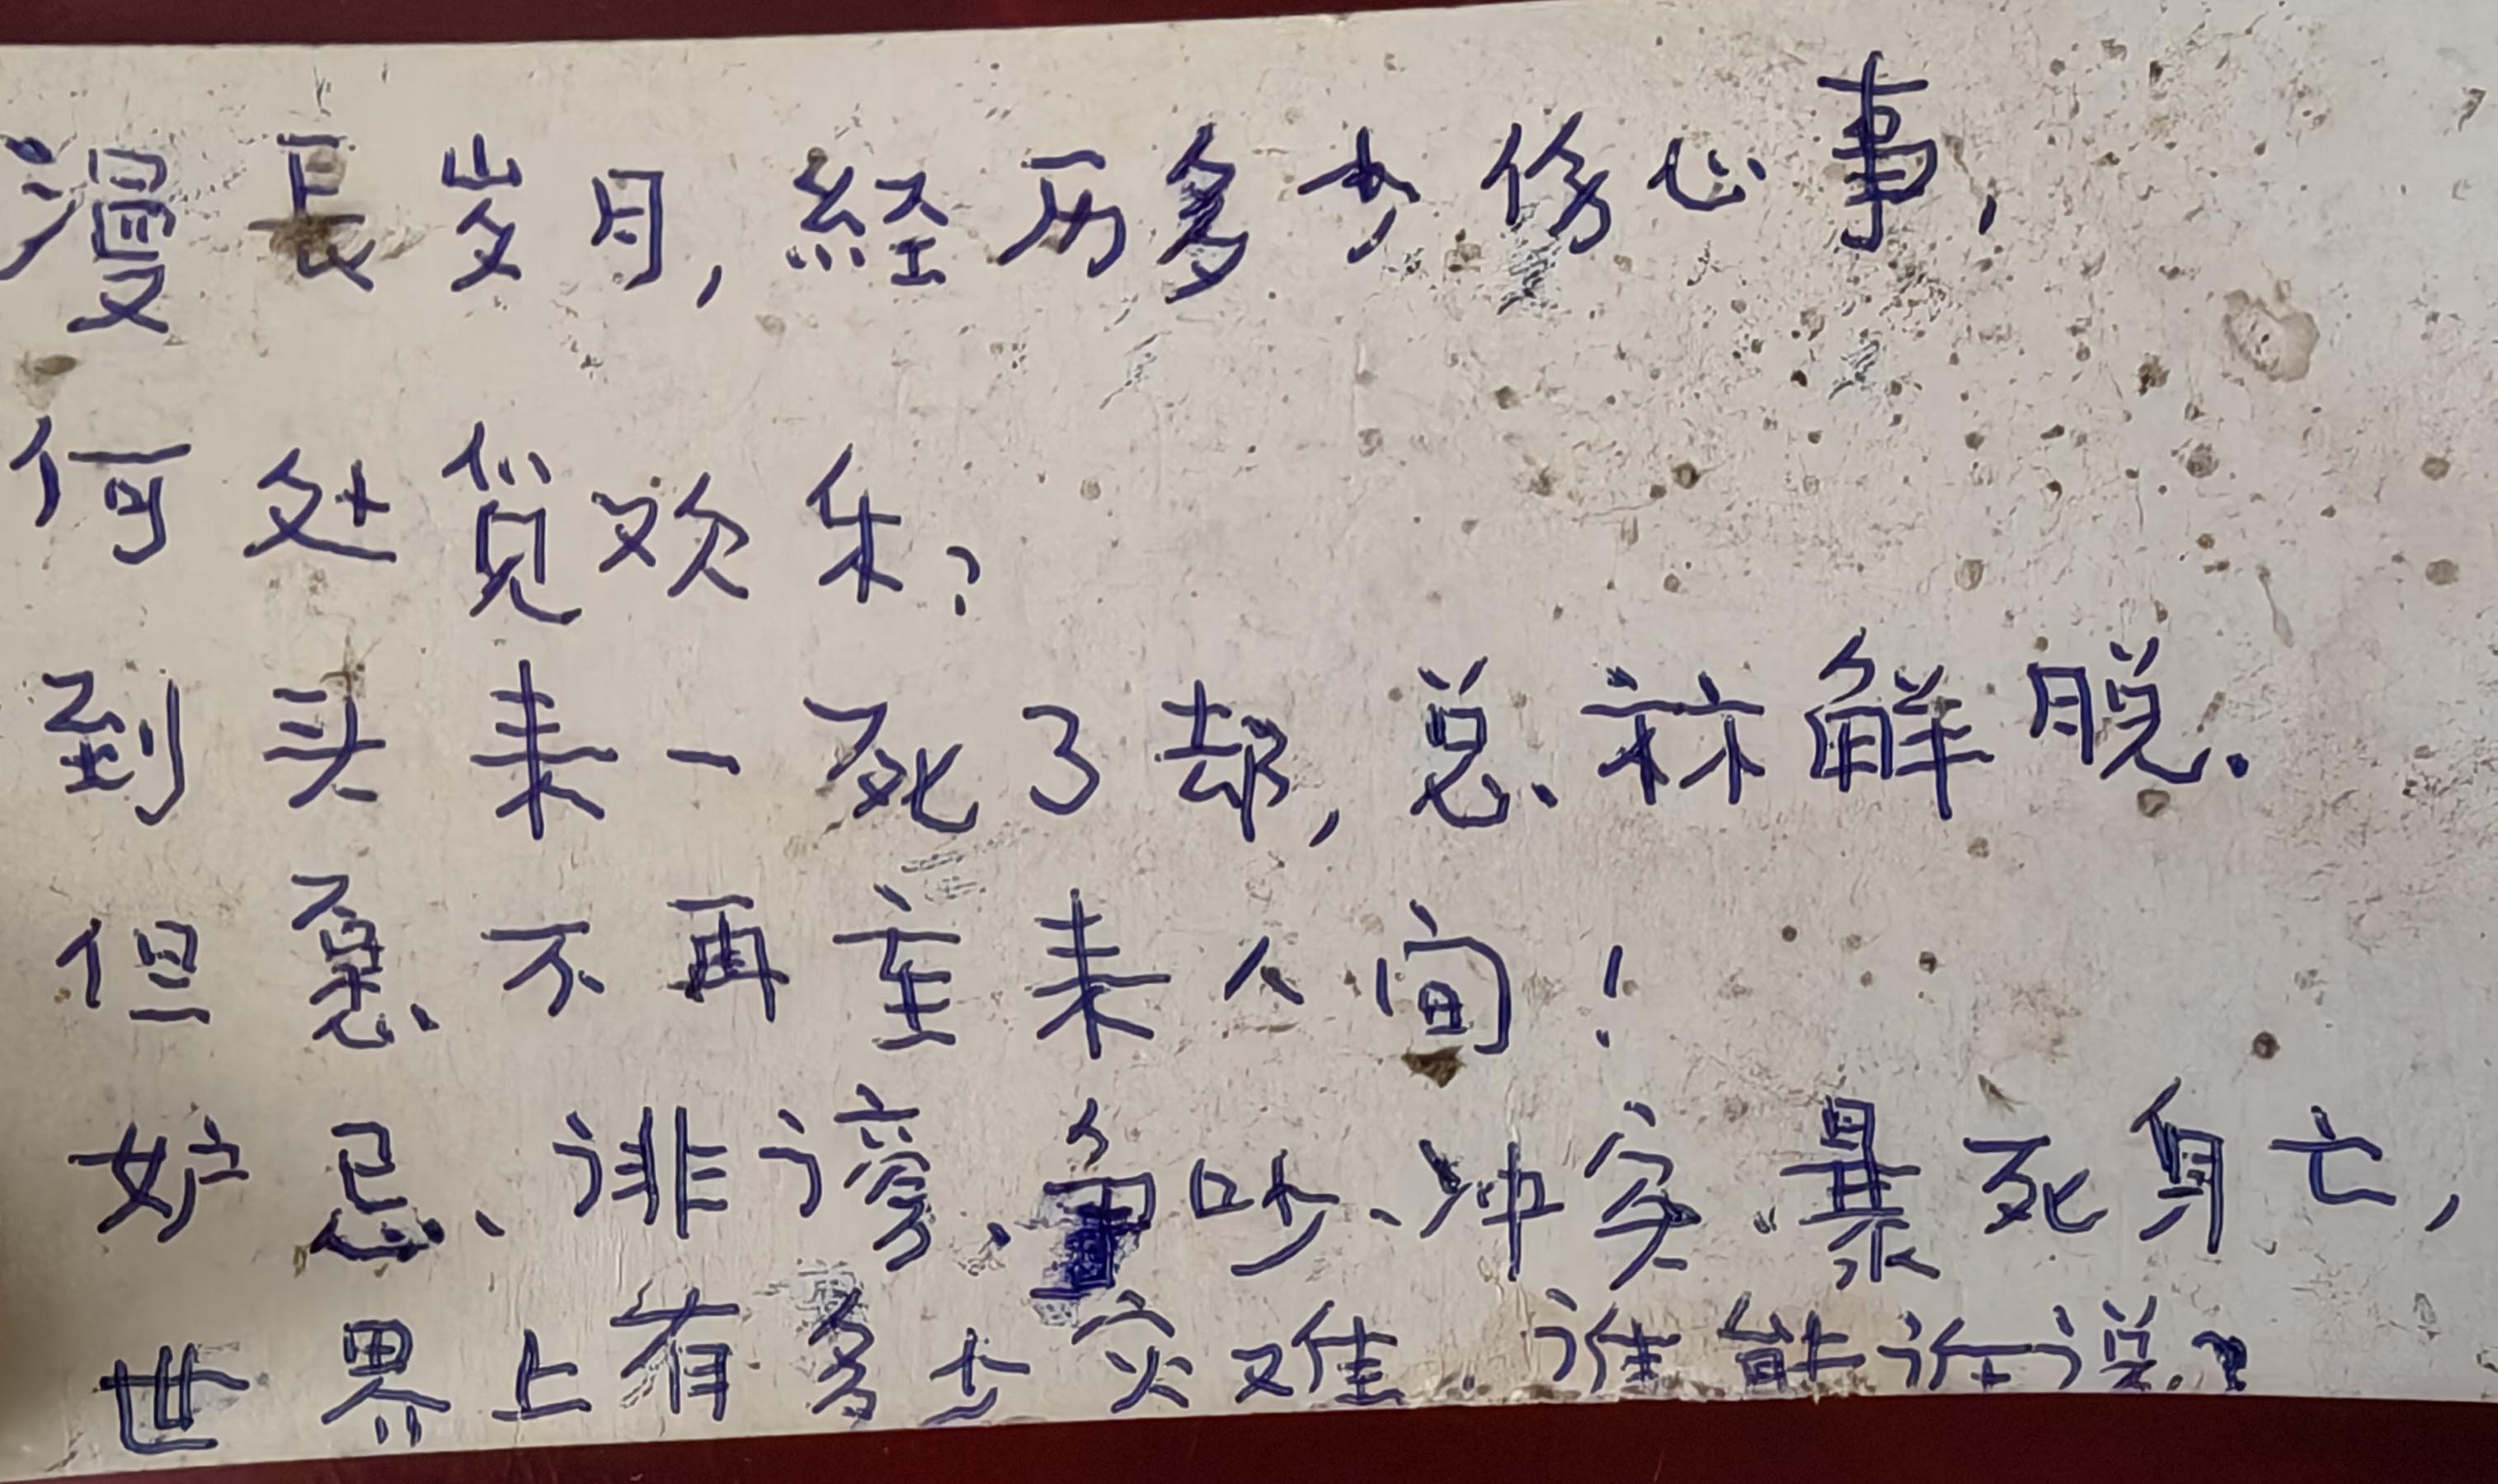 漫長岁月，経历多少伤心事，
何处觉欢乐？
到头来一死了却，总䘮解脱．
但愿不再重来人间！
妒忌、诽谤、争吵、冲突、暴死身亡，
世界上有多少灾难．谁能诉说？